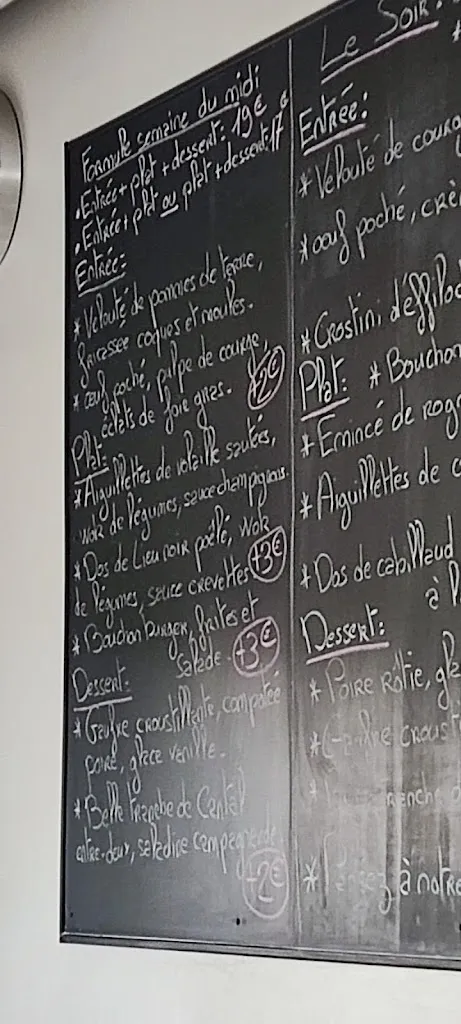 Formule semaine du midi
• Entrée + plat + dessert: 19€
• Entrée + plat ou plat + dessert: 17€
Entrée:
* Velouté de pommes de terre,
fricassée coques et moules.
* œuf poché, pulpe de courge,
éclats de foie gras. +2€
Plat:
* Aiguillettes de volaille sautées,
wok de légumes, sauce champignons.
* Dos de Lieu noir poêlé, wok
de légumes, sauce crevettes +3€
* Bouchon burger, frites et
salade. +3€
Dessert:
* Gaufre croustillante, compotée
poire, glace vanille.
* Belle tranche de Cantal
entre-deux, saladine campagnarde
+2€
Le Soir:
Entrée:
* Velouté de courg
* œuf poché, crè
* Crostini d'effiloc
Plat: * Bouchon
* Emincé de rog
* Aiguillettes de
* Dos de cabillaud
à l
Dessert:
* Poire rôtie, gla
* Gaufre crous
*
* à notre